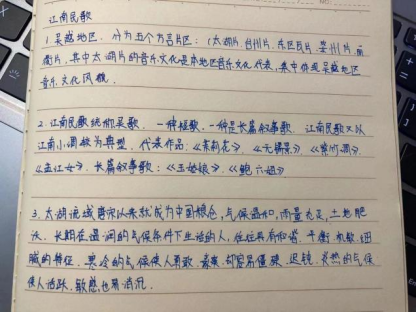 江南民歌
1. 吴越地区:分为五个方言片区:(太湖片、台州片、东瓯片、婺州片、丽
衢片,其中太湖片的音乐文化是本地区音乐文化代表,集中体现吴越地区
音乐文化风貌.
2. 江南民歌统称吴歌. 一种短歌、一种是长篇叙事歌. 江南民歌又以
江南小调最为典型. 代表作品:《茉莉花》、《无锡景》、
《孟江女》. 长篇叙事歌:《五姑娘》、《鲍六姐》
3. 太湖流域唐宋以来就成为中国粮仓,气候温和,雨量充足,土地肥
沃. 长期在温润的气候条件下生活的人,往往具有和谐、平衡、机敏、细
腻的特征. 寒冷的气候使人勇敢、却容易僵硬、迟钝. 炎热的气候
使人活跃、敏感也易消沉.